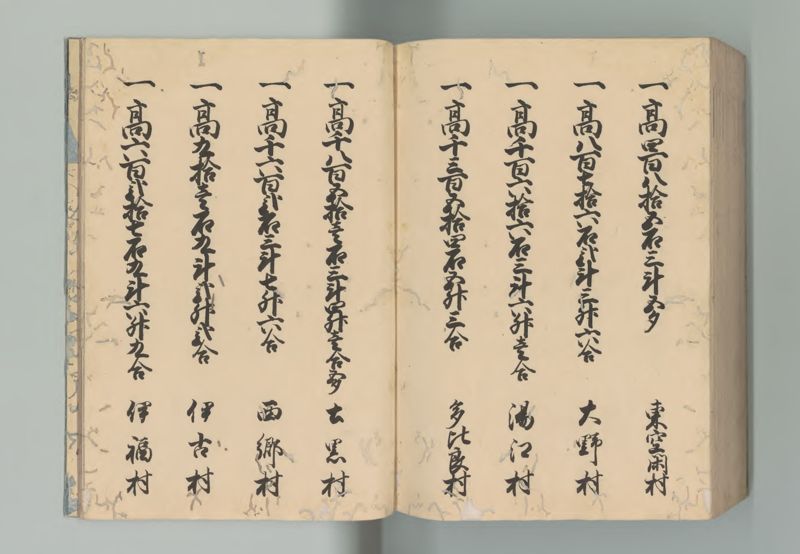 一高四百八拾五石三斗五夕 東空閑村
一高八百七拾六石弐斗三升六合 大野村
一高千百六拾六石三斗六升壱合 湯江村
一高千三百五拾四石五升三合 多比良村
一高千八百五拾壱石三斗四升壱合五夕 土黒村
一高千六百弐石三斗七升六合 西郷村
一高九拾壱石九斗弐升弐合 伊古村
一高六百弐拾七石九斗六升九合 伊福村